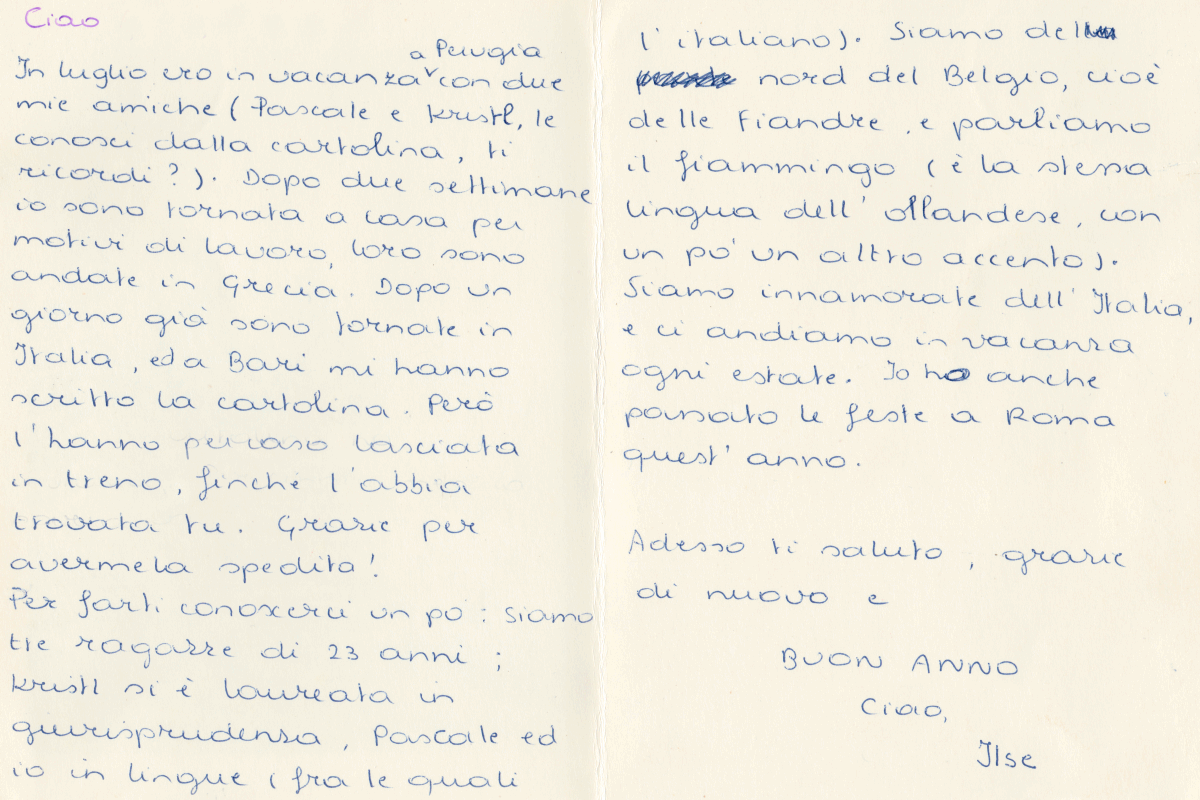 Ciao
a Perugia
In luglio ero in vacanza con due
mie amiche (Pascale e Kristl, le
conosci dalla cartolina, ti
ricordi?). Dopo due settimane
io sono tornata a casa per
motivi di lavoro, loro sono
andate in Grecia. Dopo un
giorno già sono tornate in
Italia, ed a Bari mi hanno
scritto la cartolina. Però
l'hanno percaso lasciata
in treno, finché l'abbia
trovata tu. Grazie per
avermela spedita!
Per farti conoscerci un pò: siamo
tre ragazze di 23 anni;
Kristl si è laureata in
giurisprudenza, Pascale ed
io in lingue (fra le quali
l'italiano). Siamo del
nord del Belgio, cioè
delle Fiandre, e parliamo
il fiammingo (è la stessa
lingua dell'ollandese, con
un pò un altro accento).
Siamo innamorate dell'Italia,
e ci andiamo in vacanza
ogni estate. Io ho anche
passato le feste a Roma
quest'anno.
Adesso ti saluto, grazie
di nuovo e
BUON ANNO
Ciao,
Ilse